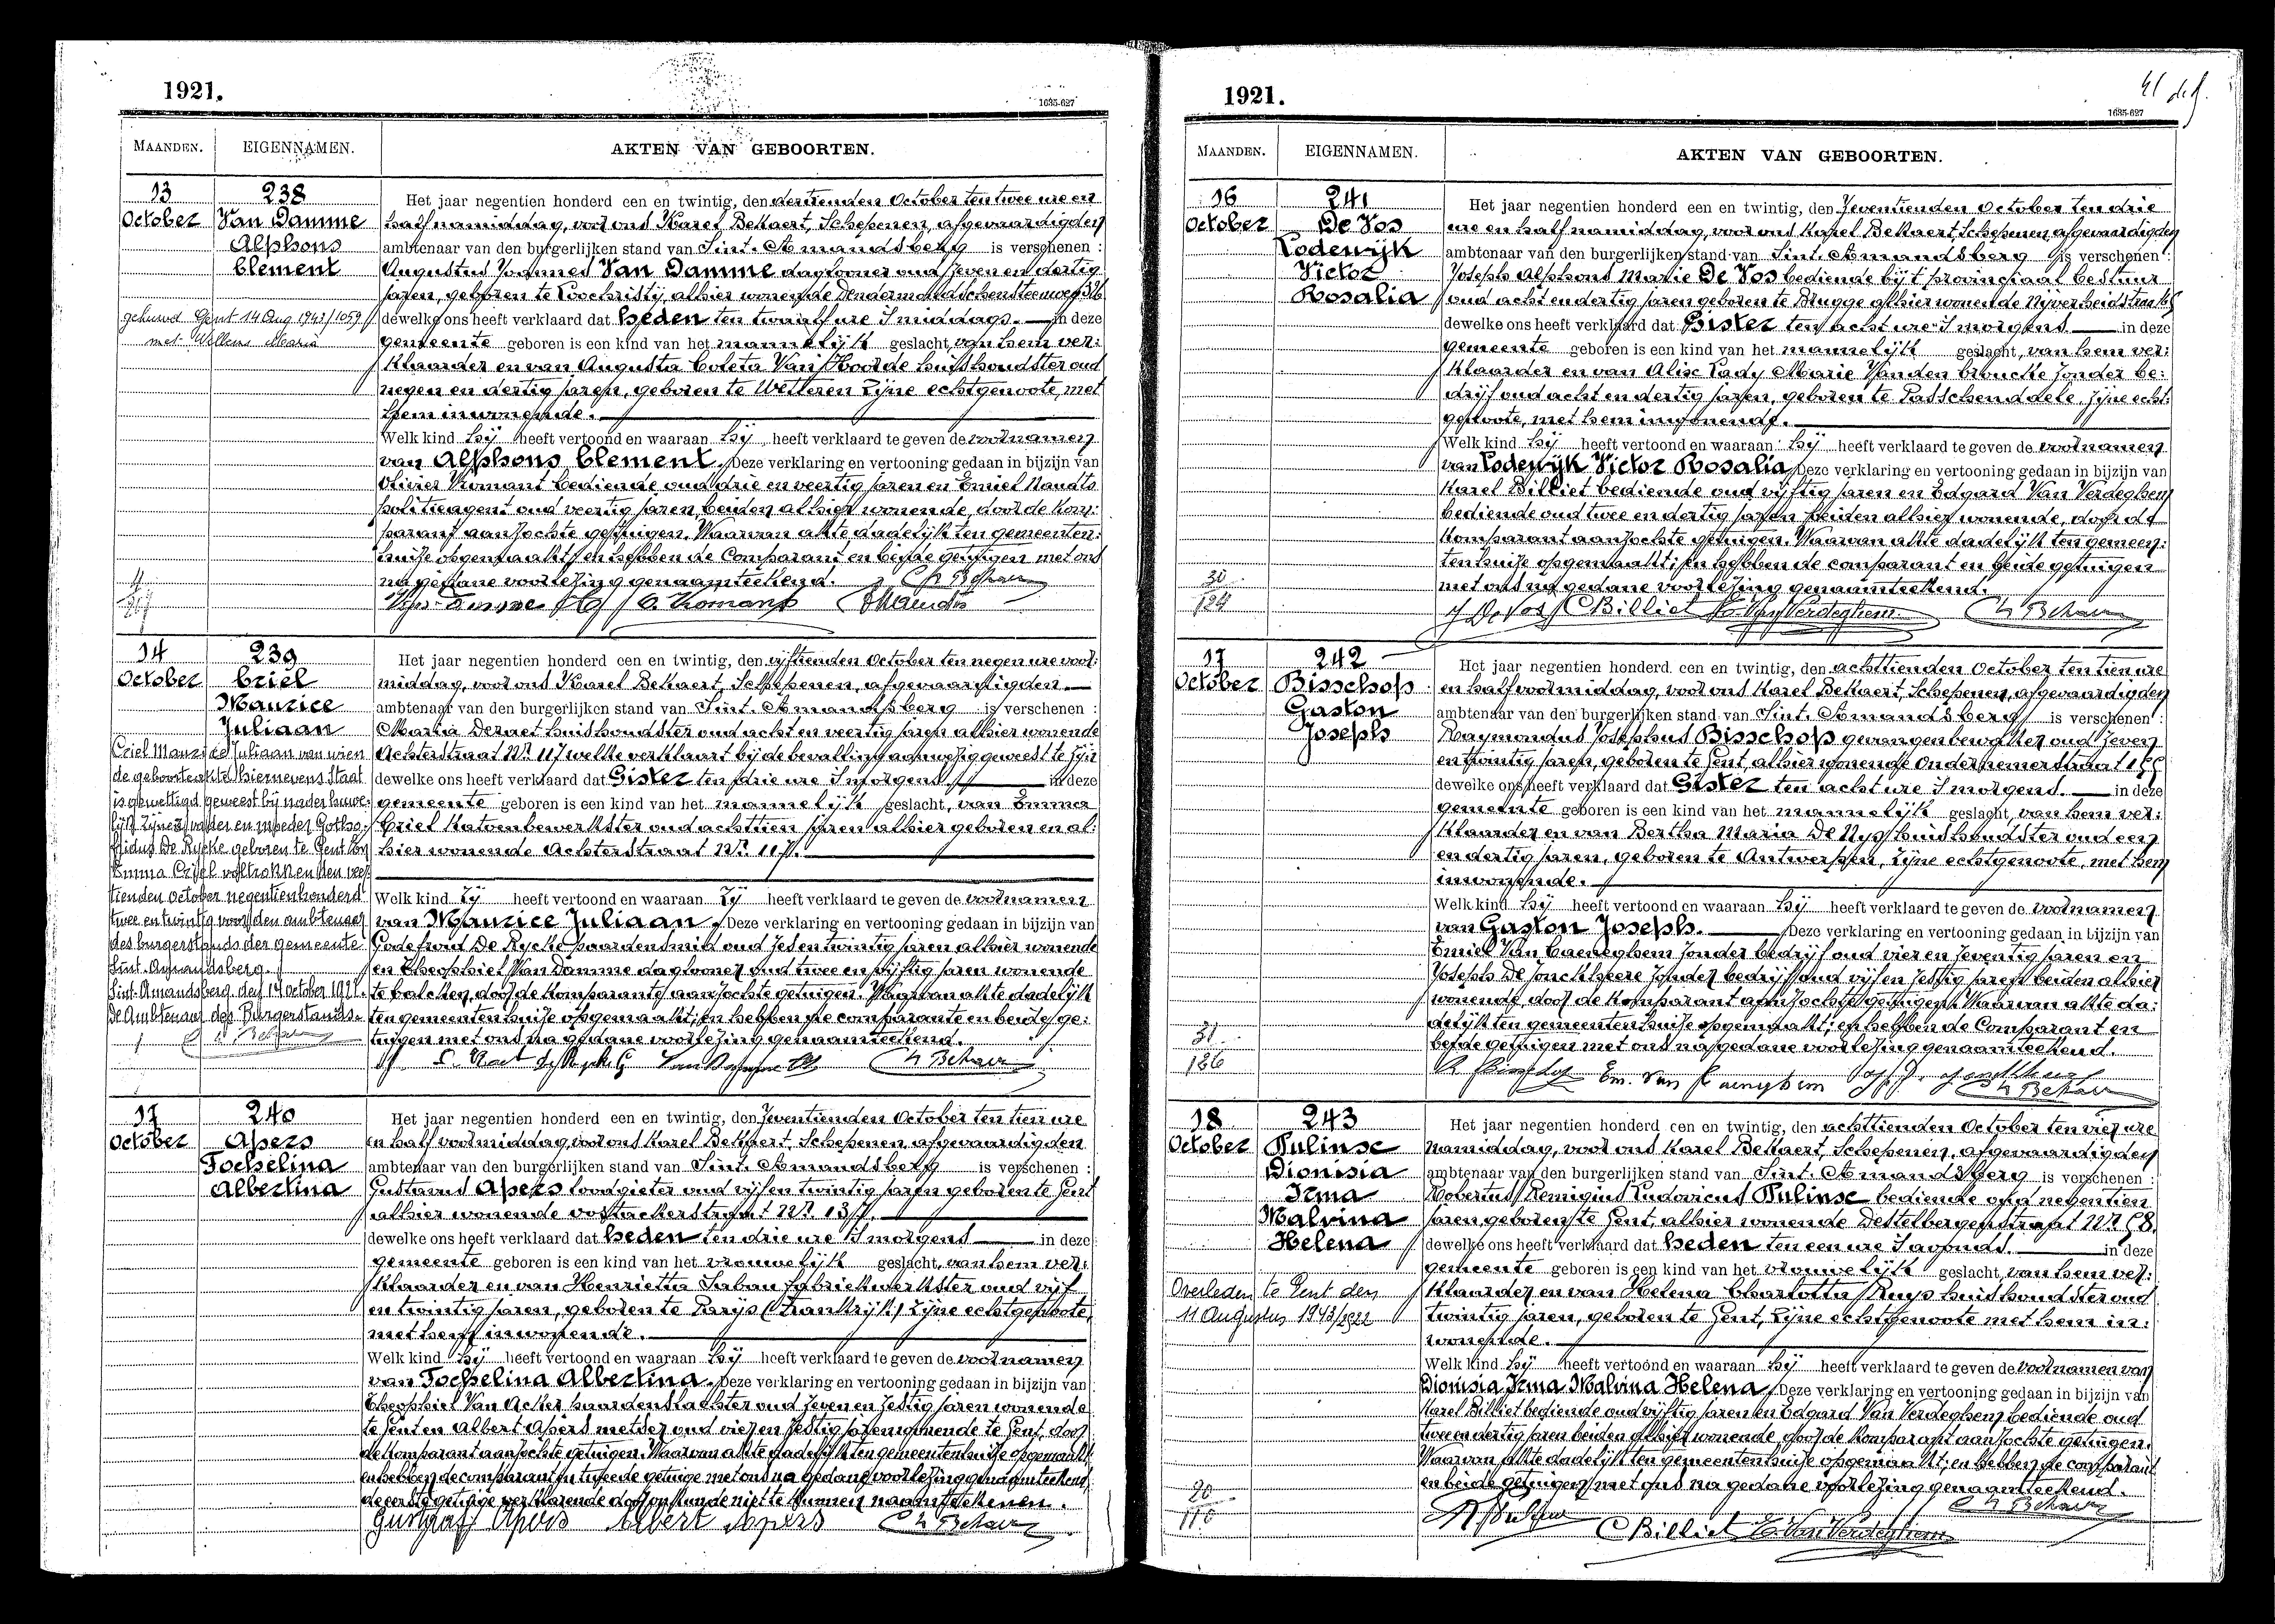 1921.
1635-627
MAANDEN. EIGENNAMEN. AKTEN VAN GEBOORTEN.
13 October
238
Van Damme
Alphons
Clement
gehuwd Gent 14 Aug 1943/1059
met Willems Maria
Het jaar negentien honderd een en twintig, den dertienden October ten twee ure en
half namiddag, voor ons Karel Bekaert, Schepenen, afgevaardigden
ambtenaar van den burgerlijken stand van Sint. Amandsberg is verschenen :
Augustus Joannes Van Damme daglooner oud zeven en dertig
jaren, geboren te Loochristy, alhier wonende Dendermondschensteenweg
dewelke ons heeft verklaard dat heden ten twaalf ure 's middags. in deze
gemeente geboren is een kind van het mannelijk geslacht, van hem ver:
klaarder en van Augusta Coleta Van Hoorde huishoudster oud
negen en dertig jaren, geboren te Wetteren zijne echtgenoote, met
hem inwonende.
Welk kind hij heeft vertoond en waaraan hij heeft verklaard te geven de voornamen
van Alphons Clement. Deze verklaring en vertooning gedaan in bijzijn van
Olivier Vromant bediende oud drie en veertig jaren en Emiel Naudts
politieagent oud veertig jaren, beiden alhier wonende, door de kom:
parant aanzochte getuigen. Waarvan akte dadelijk ten gemeenten:
huize opgemaakt; en hebben de Comparant en beide getuigen met ons
na gedane voorlezing genaamteekend.
14 October
239
Criel
Maurice
Juliaan
Criel Maurice Juliaan van wien
de geboorteakte hiernevens staat
is gewettigd geweest bij nader huwe:
lijk zijner vader en moeder Gotho:
fridus De Rycke geboren te Gent en
Emma Criel voltrokken den veer
tienden October negentienhonderd
twee en twintig voor den ambtenaar
des burgerstands der gemeente
Sint-Amandsberg.
Sint-Amandsberg, den 14 october 1922.
De Ambtenaar des Burgerstands.
Het jaar negentien honderd een en twintig, den vijftienden October ten negen ure voor:
middag, voor ons Karel Bekaert, Schepenen, afgevaardigden.
ambtenaar van den burgerlijken stand van Sint. Amandsberg is verschenen :
Maria Dernet huishoudster oud acht en veertig jaren alhier wonende
Achterstraat Nr. 117 welke verklaart bij de bevalling aanwezig geweest te zijn
dewelke ons heeft verklaard dat Gister ten drie ure 's morgens. in deze
gemeente geboren is een kind van het mannelijk geslacht, van Emma
Criel katoenbewerkster oud achttien jaren alhier geboren en al:
hier wonende Achterstraat Nr. 117.
Welk kind Zij heeft vertoond en waaraan Zij heeft verklaard te geven de voornamen
van Maurice Juliaan. Deze verklaring en vertooning gedaan in bijzijn van
Godefroid De Rycke paardensmid oud zes en twintig jaren alhier wonende
en Theophiel Van Damme daglooner oud twee en vijftig jaren wonende
te balcken, door de komparante aanzochte getuigen. Waarvan akte dadelijk
ten gemeentenhuize opgemaakt; en hebben de comparante en beide ge:
tuigen met ons na gedane voorlezing genaamteekend.
17 October
240
Apers
Jochelina
Albertina
Het jaar negentien honderd een en twintig, den Zeventienden October ten tien ure
en half voormiddag, voor ons Karel Bekaert, Schepenen, afgevaardigden
ambtenaar van den burgerlijken stand van Sint. Amandsberg is verschenen :
Gustavus Apers loodgieter oud vijf en twintig jaren geboren te Gent
alhier wonende oostackerstraat Nr.
dewelke ons heeft verklaard dat heden ten drie ure 's morgens in deze
gemeente geboren is een kind van het vrouwelijk geslacht, van hem ver:
klaarder en van Henrietta Sabau fabriekwerkster oud vijf
en twintig jaren, geboren te Parys (Frankrijk) zijne echtgenoote,
met hem inwonende.
Welk kind hij heeft vertoond en waaraan hij heeft verklaard te geven de voornamen
van Jochelina Albertina. Deze verklaring en vertooning gedaan in bijzijn van
Theophiel Van Acker paardenslachter oud zeven en zestig jaren wonende
te Gent en Albert Apers metser oud vier en zestig jaren wonende te Gent, door
de komparant aanzochte getuigen. Waarvan akte dadelijk ten gemeentenhuize opgemaakt
en hebben de comparant en tweede getuige met ons na gedane voorlezing genaamteekend
de eerste getuige verklarende door onkunde niet te kunnen naamteekenen.
Gustaaf Apers Albert Apers
1921.
1635-627
MAANDEN. EIGENNAMEN. AKTEN VAN GEBOORTEN.
16 October
241
De Vos
Lodewijk
Victor
Rosalia
30
124
Het jaar negentien honderd een en twintig, den Zeventienden October ten drie
ure en half namiddag, voor ons Karel Bekaert, Schepenen, afgevaardigden
ambtenaar van den burgerlijken stand van Sint. Amandsberg is verschenen :
Joseph Alphons Marie De Vos bediende bij 't provinciaal bestuur
oud acht en dertig jaren geboren te Brugge alhier wonende Nyverheidstraat
dewelke ons heeft verklaard dat Gister ten acht ure 's morgens in deze
gemeente geboren is een kind van het mannelijk geslacht, van hem ver:
klaarder en van Alix Lady Marie Vanden Broucke zonder be:
drijf oud acht en dertig jaren, geboren te Passchendaele, zijne echt:
genoote, met hem inwonende.
Welk kind hij heeft vertoond en waaraan hij heeft verklaard te geven de voornamen
van Lodewijk Victor Rosalia. Deze verklaring en vertooning gedaan in bijzijn van
Karel Billiet bediende oud vijftig jaren en Edgard Van Verdeghem
bediende oud twee en dertig jaren beiden alhier wonende, door de
komparant aanzochte getuigen. Waarvan akte dadelijk ten gemeen:
tenhuize opgemaakt; en hebben de comparant en beide getuigen
met ons na gedane voorlezing genaamteekend.
J De Vos C Billiet E. Van Verdeghem
17 October
242
Bisschop
Gaston
Joseph
31
126
Het jaar negentien honderd een en twintig, den achttienden October ten tien ure
en half voormiddag, voor ons Karel Bekaert, Schepenen, afgevaardigden
ambtenaar van den burgerlijken stand van Sint. Amandsberg is verschenen :
Raymondus Josephus Bisschop gevangenbewaker oud zeven
en twintig jaren, geboren te Gent, alhier wonende Ondernemerstraat
dewelke ons heeft verklaard dat Gister ten acht ure 's morgens. in deze
gemeente geboren is een kind van het mannelijk geslacht, van hem ver:
klaarder en van Bertha Maria De Nys huishoudster oud een
en dertig jaren, geboren te Antwerpen, zijne echtgenoote, met hem
inwonende.
Welk kind hij heeft vertoond en waaraan hij heeft verklaard te geven de voornamen
van Gaston Joseph. Deze verklaring en vertooning gedaan in bijzijn van
Emiel Van Caeneghem zonder bedrijf oud vier en zeventig jaren en
Joseph De Jonckheere zonder bedrijf oud vijf en zestig jaren beiden alhier
wonende, door de komparant aanzochte getuigen. Waarvan akte da:
delijk ten gemeentenhuize opgemaakt; en hebben de Comparant en
beide getuigen met ons na gedane voorlezing genaamteekend.
18 October
243
Pulinse
Dionisia
Irma
Malvina
Helena
Overleden te Gent den
11 Augustus 1943/1922
20
116
Het jaar negentien honderd een en twintig, den achttienden October ten vier ure
namiddag, voor ons Karel Bekaert, Schepenen, afgevaardigden
ambtenaar van den burgerlijken stand van Sint. Amandsberg is verschenen :
Robertus Remigius Ludovicus Pulinse bediende oud negentien
jaren, geboren te Gent, alhier wonende Destelbergenstraat Nr. 58.
dewelke ons heeft verklaard dat heden ten een ure 's avonds. in deze
gemeente geboren is een kind van het vrouwelijk geslacht, van hem ver:
klaarder en van Helena Charlotta Ruys huishoudster oud
twintig jaren, geboren te Gent, zijne echtgenoote met hem in:
wonende.
Welk kind hij heeft vertoond en waaraan hij heeft verklaard te geven de voornamen van
Dionisia Irma Malvina Helena. Deze verklaring en vertooning gedaan in bijzijn van
Karel Billiet bediende oud vijftig jaren en Edgard Van Verdeghem bediende oud
twee en dertig jaren beiden alhier wonende, door de komparant aanzochte getuigen.
Waarvan akte dadelijk ten gemeentenhuize opgemaakt; en hebben de comparant
en beide getuigen met ons na gedane voorlezing genaamteekend.
C Billiet E. Van Verdeghem